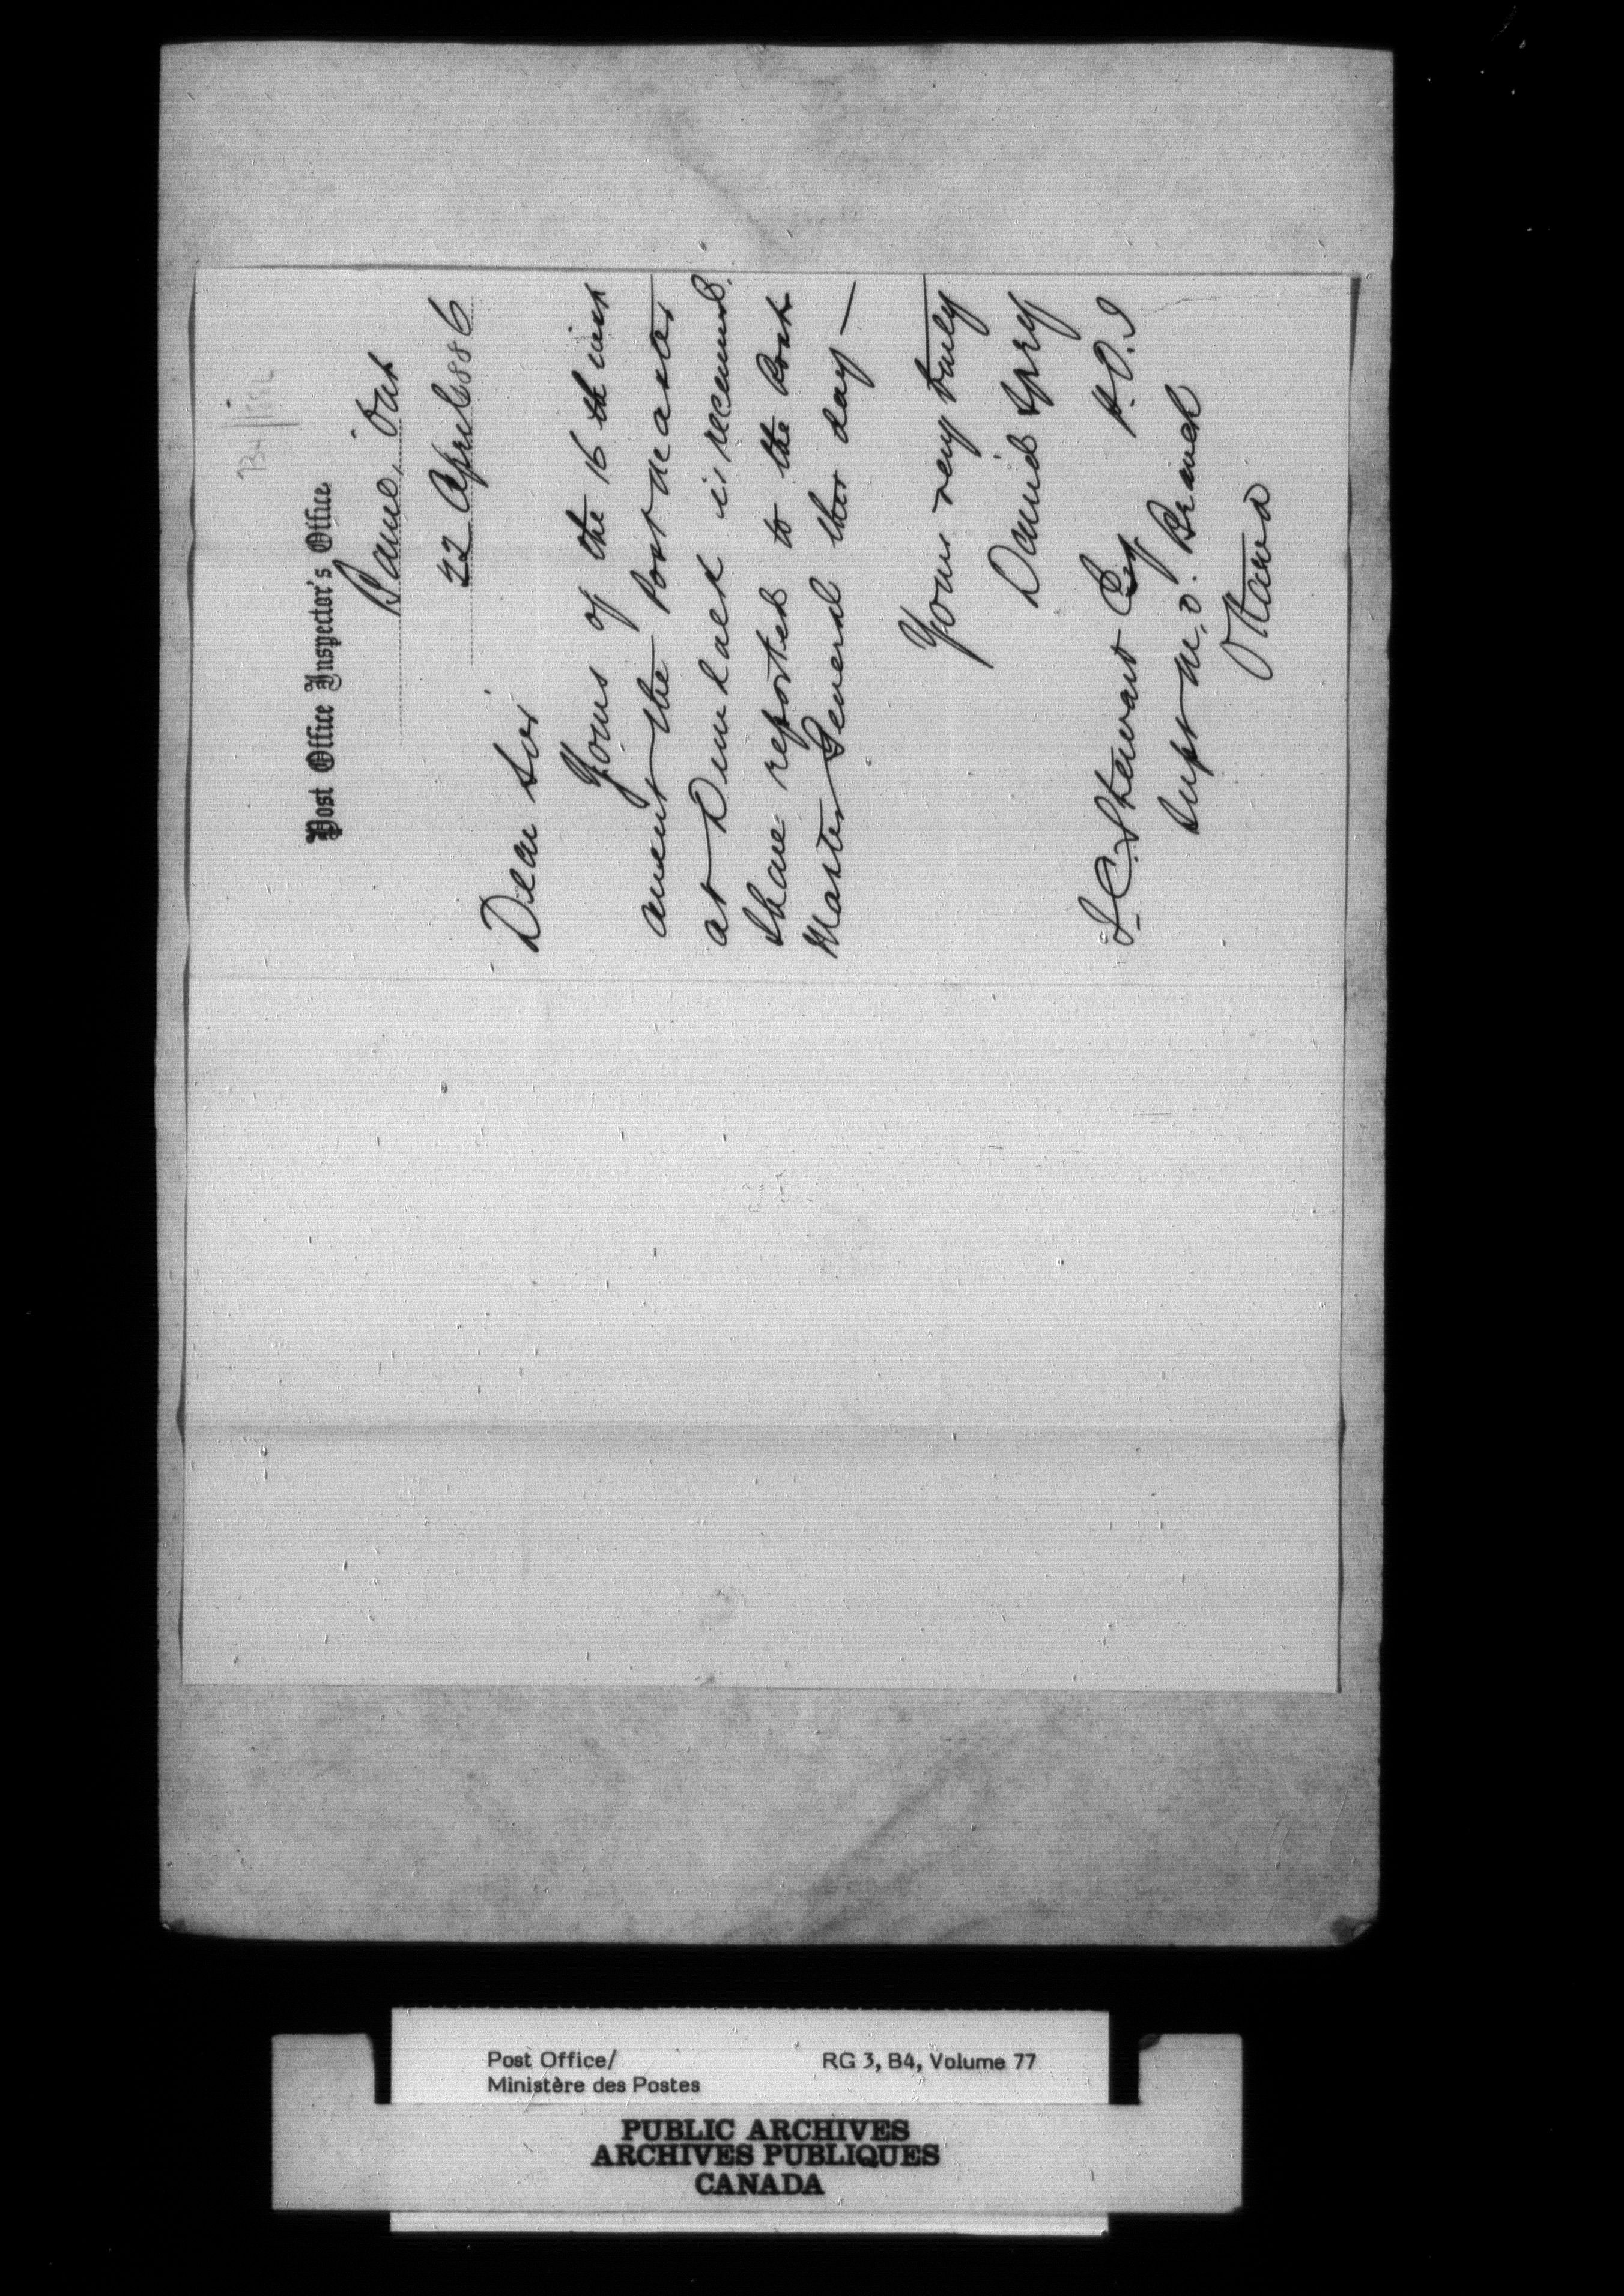 734/1886
Post Office Inspector's Office,
Barrie, Ont
22 April 1886
Dear Sir
Yours of the 16th inst
anent the Postmaster
at Dundalk is received.
I have reported to the Post
Master General this day —
Yours very truly
Daniel Spry
P.O.I
J.C. Stewart Esq
Supt M.O. Branch
Ottawa
Post Office/
Ministère des Postes
RG 3, B4, Volume 77
PUBLIC ARCHIVES
ARCHIVES PUBLIQUES
CANADA